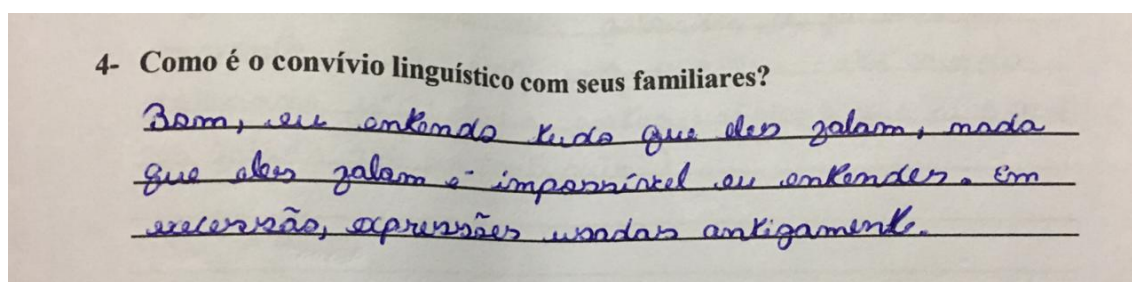 4- Como é o convívio linguístico com seus familiares?
Bom, eu entendo tudo que eles falam, nada
que eles falam é impossível eu entender. Em
excerssão, expressões usadas antigamente.